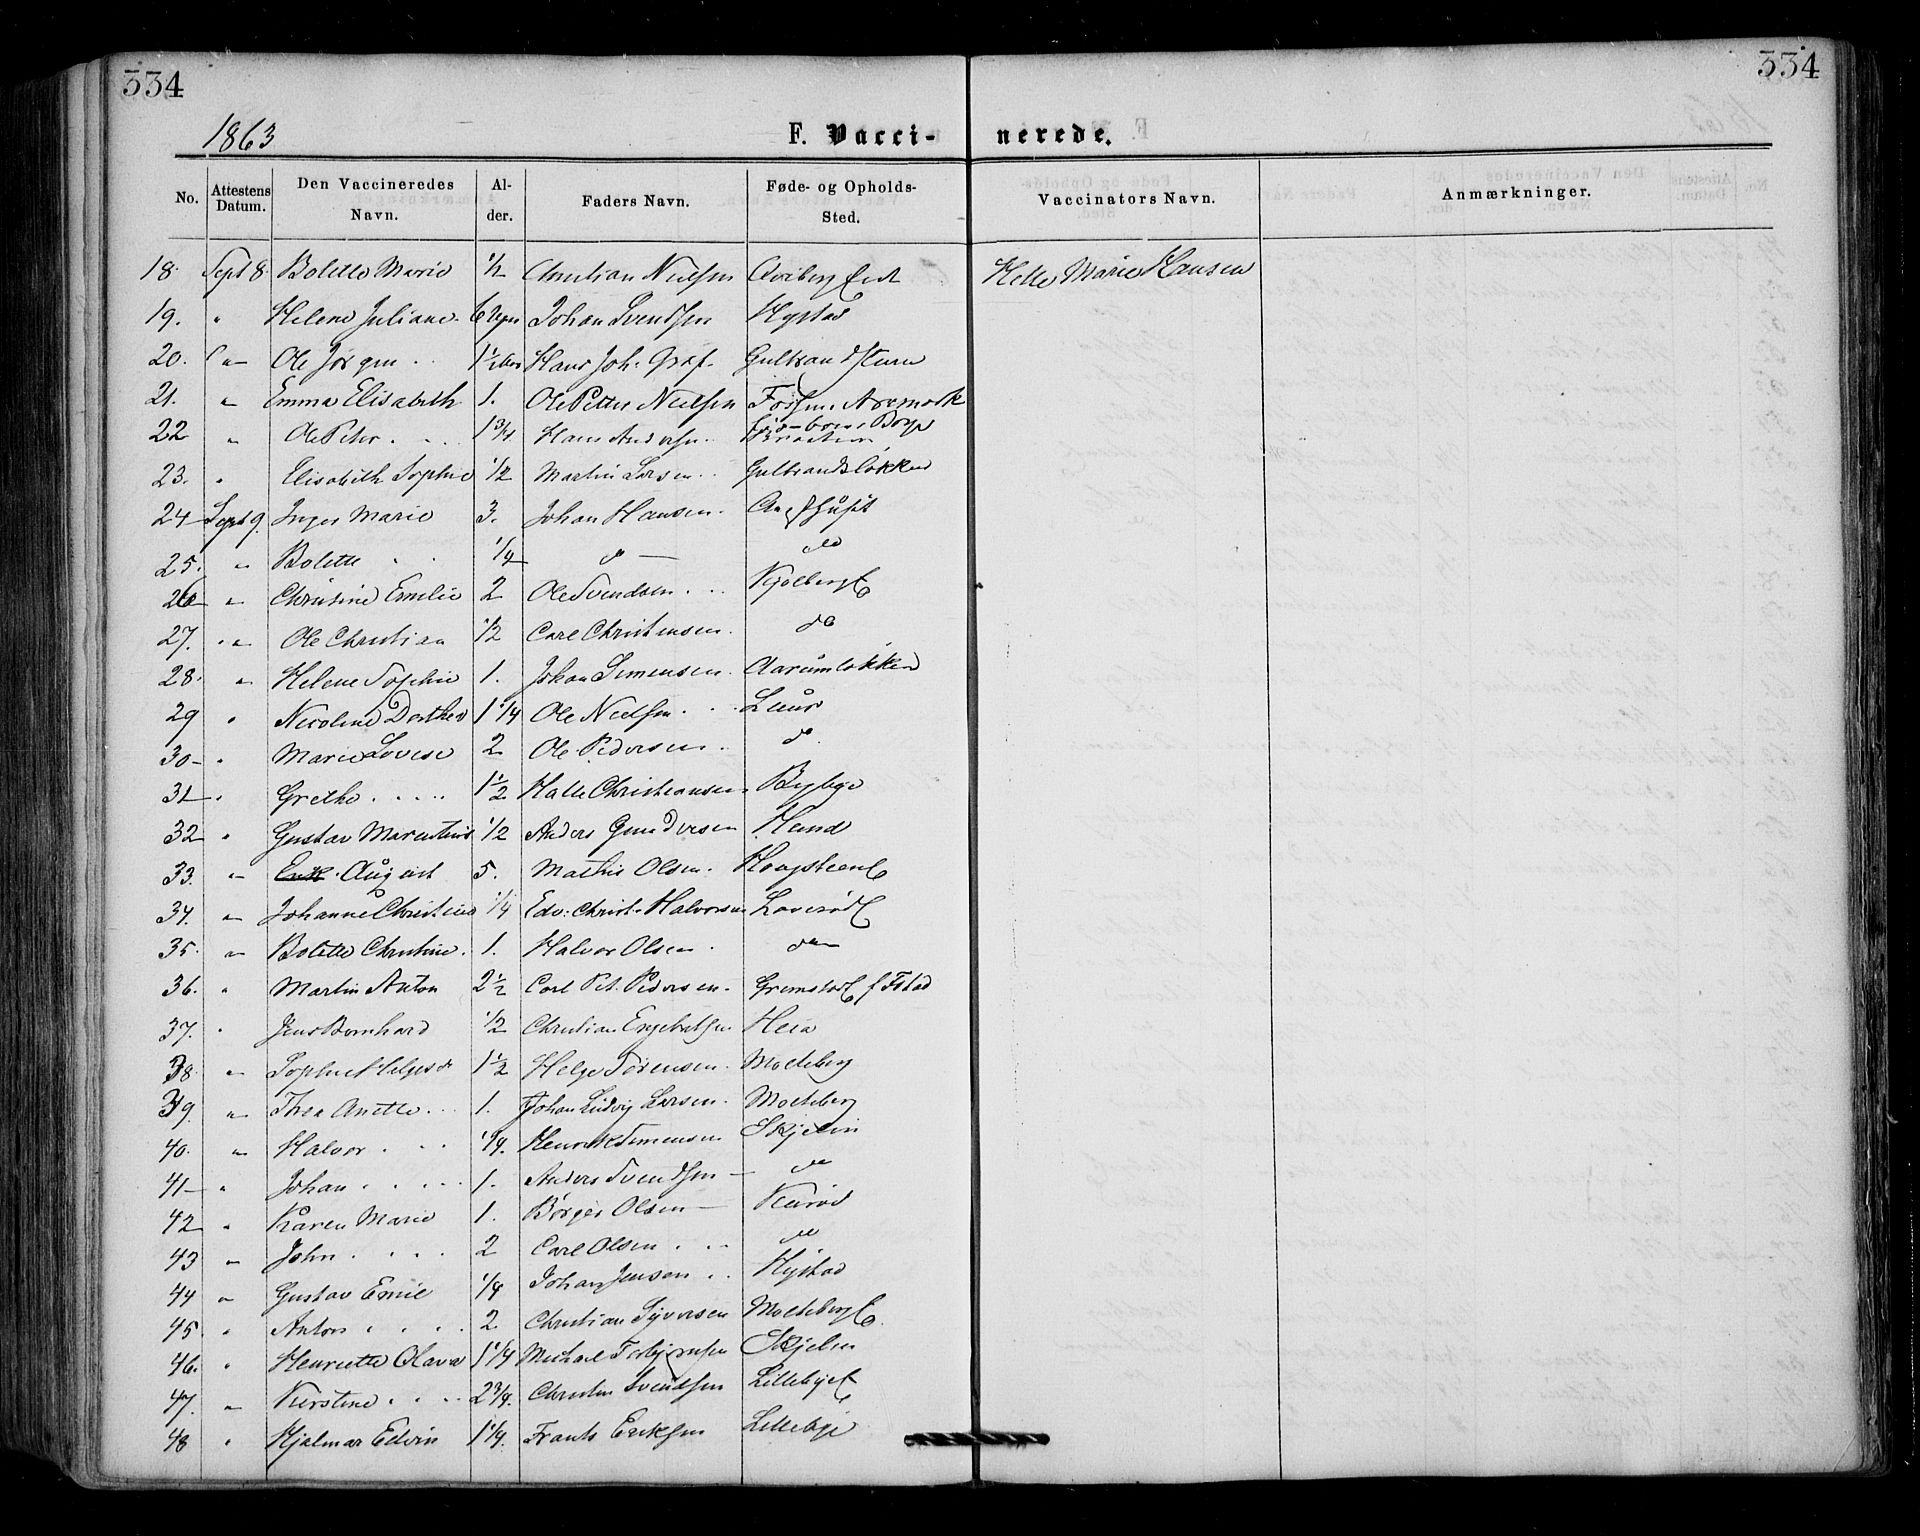 334
334
1863
F. Vacci-
nerede.
No.
Attestens Datum.
Den Vaccineredes Navn.
Al-der.
Faders Navn.
Føde- og Opholds-Sted.
Vaccinators Navn.
Anmærkninger.
18. Sept 8. Bolette Marie 1/2 Christian Nielsen Helle Marie Hansen
19. " Helene Juliane. 6 Johan Svendsen Hystad
20. " Ole Jørgen 1 1/2 Hans Joh.
21. " Emma Elisabeth 1. Ole Petter Nielsen Aremark
22 " Ole Peter. 1 3/4 Hans Andersen.
23. " Elisabeth Sophie 1/2 Martin Larsen Gulbrandsløkken
24 Sept 9. Inger Marie 3. Johan Hansen.
25. " Bolette 1/4 do do
26 " Christine Emilie 2 Ole Svendsen. Kjølberg E
27. " Ole Christian 1/2 Carl Christensen. do
28. " Helene Sophie 1. Johan Simensen. Aarumløkken
29 " Nicoline Dorthea 1 1/4 Ole Nielsen. Lunr
30 " Marie Lovise 2 Ole Pedersen. do.
31 " Grethe 1 1/2 Halle Christiansen
32 " Gustav Marentius 1/2 Anders Gundersen Hund
33. " Erik August 5. Mathis Olsen. Haugsteen E
34. " Johanne Christine 1/4 Edv: Christ: Halvorsen
35. " Bolette Christine. 1. Halvor Olsen do
36. " Martin Anton 2 1/2 Carl Pet. Pedersen.
37. " Jens Bernhard 1/2 Christian Engebretsen Heia
38. " Sophie 1 1/2 Helge Sørensen. Molteberg
39. " Thea Anette 1. Johan Ludvig Larsen. Molteberg
40. " Halvor. 1/4. Henrik Simensen Skjelin
41 " Johan 1. Anders Svendsen do
42 " Karen Marie 1. Børger Olsen
43 " John. 2 Carl Olsen. do
44 " Gustav Emil 1/4 Johan Jensen Hystad
45. " Anton 2. Christian Syversen Molteberg E.
46. " Henriette Olava 1 1/4 Michael Torbjørnsen Skjelin
47. " Kirstine 2 3/4. Christian Svendsen Lillebye E
48 " Hjalmar Edvin 1 1/4. Frants Eriksen Lillebye